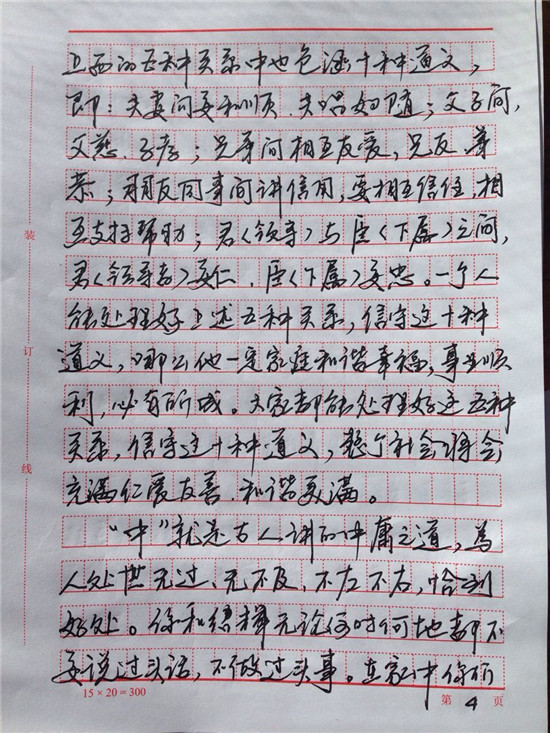 上面的五种关系中也包涵十种道义,
即:夫妻间要和顺.夫唱妇随;父子间,
父慈.子孝;兄弟间相互友爱,兄友.弟
恭;朋友同事间讲信用,要相互信任,相
互支持帮助;君(领导)与臣(下属)之间,
君(领导者)要仁.臣(下属)要忠。一个人
能处理好上述五种关系,信守这十种
道义,哪么他一定家庭和谐幸福,事业顺
利,必有所成。大家都能处理好这五种
关系,信守这十种道义,整个社会将会
充满仁爱友善.和谐美满。
"中"就是古人讲的中庸之道,為
人处世无过、无不及,不左不右,恰到
好处。你和 无论何时何地都不
要说过头话,不做过头事。在家中你们
装
订
线
15×20=300
第 4 页